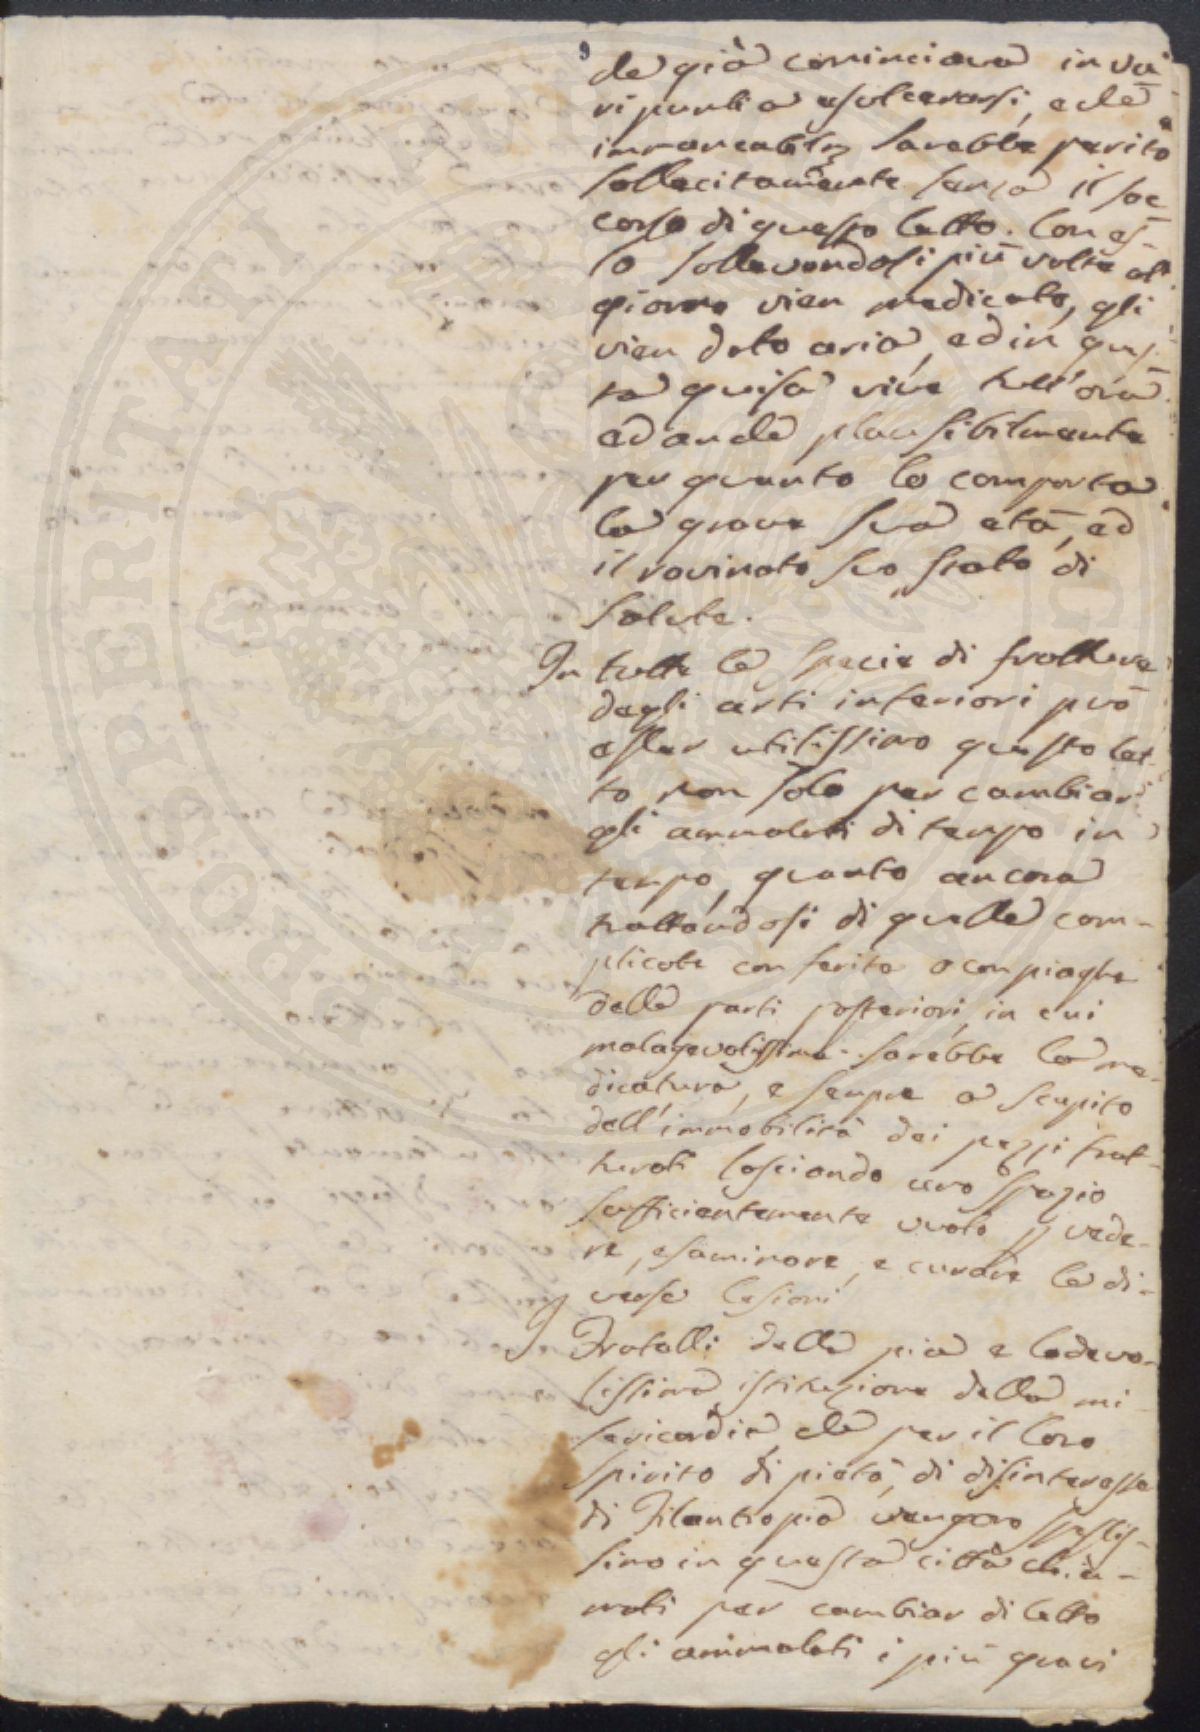 9
che già cominciava in va-
ri punti a esulcerarsi, e che
immancabilm sarebbe perito
sollecitamente senza il soc-
corso di questo letto. Con es-
so sollevandosi più volte al
giorno vien medicato, gli
vien dato aria, ed in ques-
ta guisa vive tutt'ora
ed anche plausibilmente
per quanto lo comporta
la grave sua età, ed
il rovinato suo stato di
salute.
In tutte le specie di fratture
degli arti inferiori può
esser utilissimo questo let-
to non solo per cambiar
gli ammalati di tempo in
tempo, quanto ancora
trattandosi di quelle com-
plicate con ferite o con piaghe
delle parti posteriori, in cui
malagevolissima sarebbe la me-
dicatura, e sempre a scapito
dell'immobilità dei pezzi frat-
turati lasciando uno spazio
sufficientemente vuoto p vede-
re, esaminare, e curare le di-
verse lesioni
I Fratelli della pia e lodevo-
lissima istituzione della mi-
sericordia, che per il loro
spirito di pietà, di disinteresse
di Filantropia vengono spessis-
simo in questa città chia-
mati per cambiar di letto
gli ammalati i più gravi
PROSPERITATI PVBLICAE